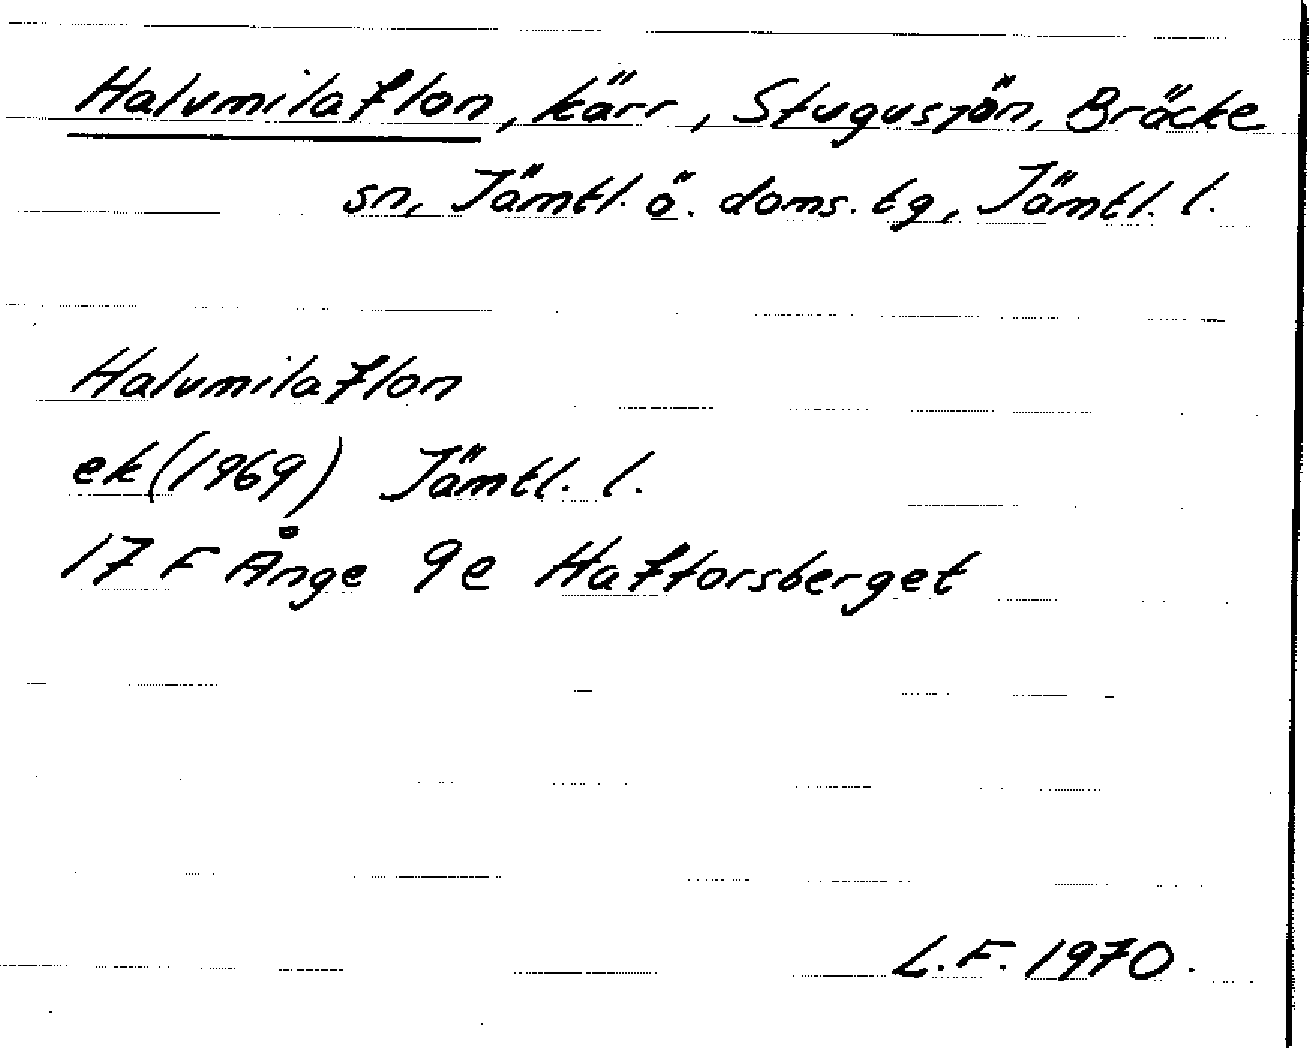 Halvmilaflon, kärr, Stugusjön, Bräcke
sn, Jämtl. ö. doms. tg, Jämtl. l.
Halvmilaflon
ek (1969) Jämtl. l.
17 F Ånge 9e Haftorsberget
L.F. 1970.